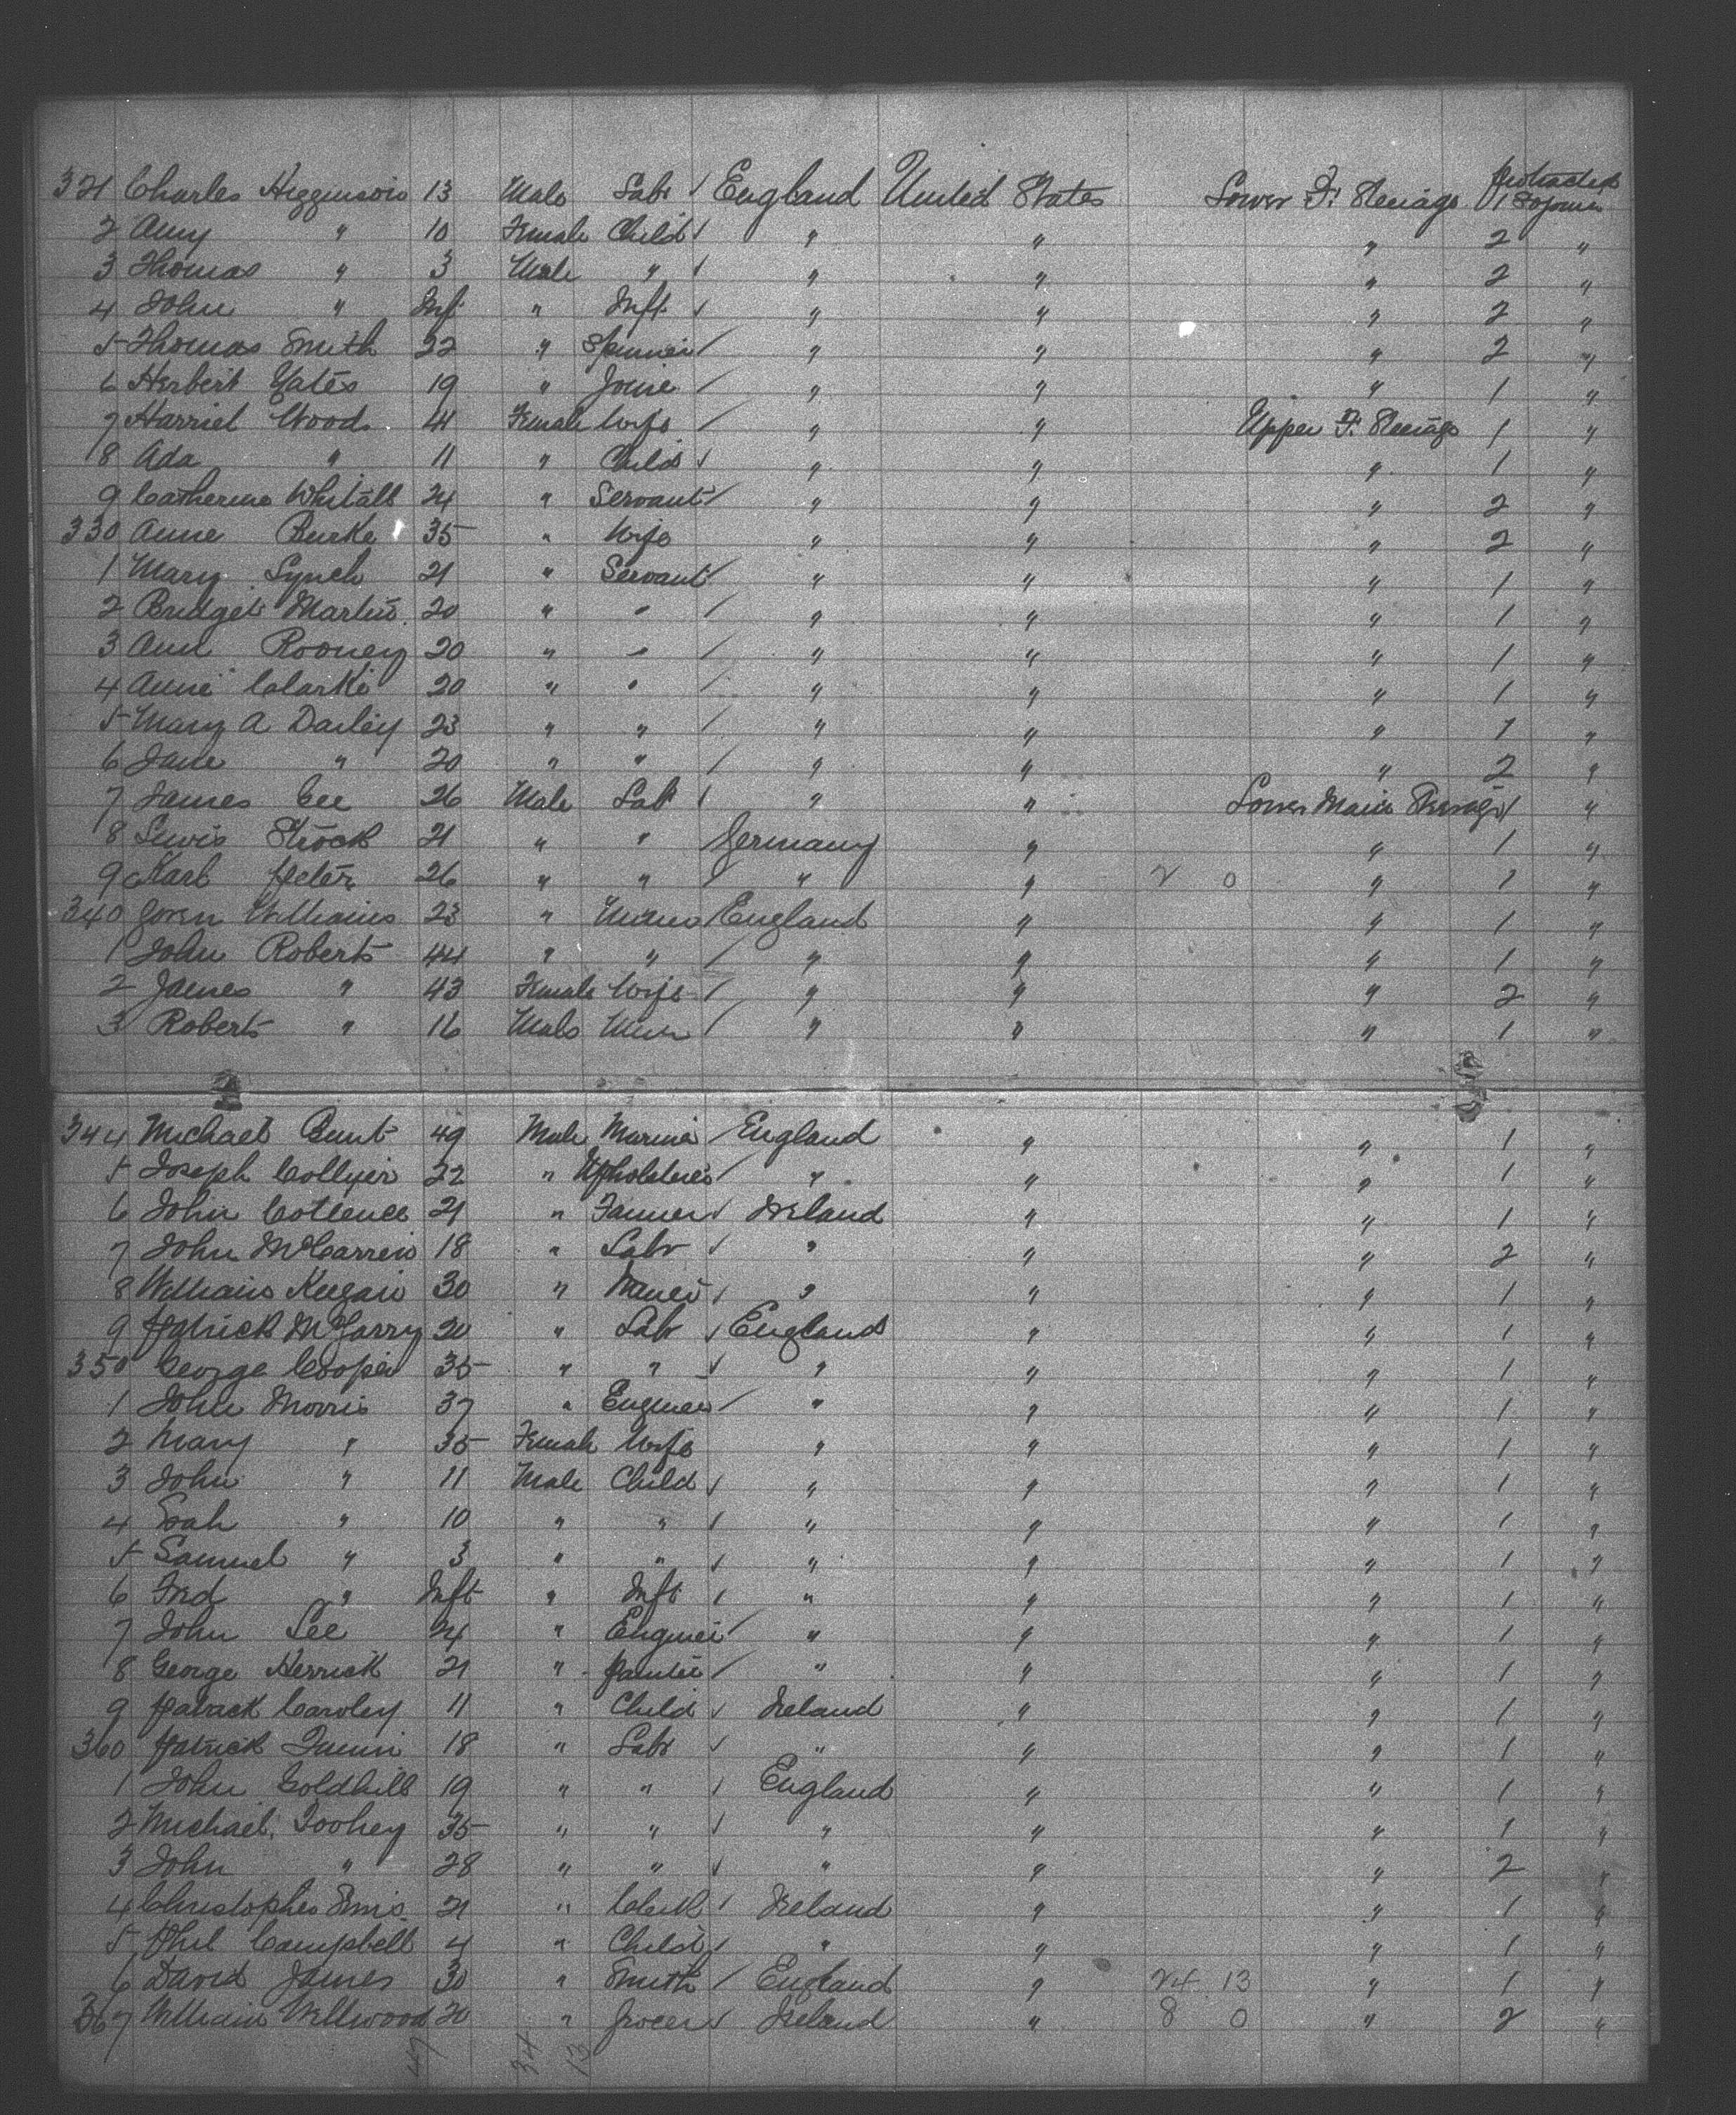 321 Charles Higginson 13 Male Labr ✓ England United States Lower F. Steerage Protracted 1 Sojourn
2 Amy " 10 Female Child ✓ " " " 2 "
3 Thomas " 3 Male " ✓ " " " 2 "
4 John " Inft " Inft ✓ " " " 2 "
5 Thomas Smith 22 " Spinner / " " " 2 "
6 Herbert Yates 19 " / " " " 1 "
7 Harriet Wood 41 Female Wife / " " Upper F. Steerage 1 "
8 Ada " 11 " Child ✓ " " " 1 "
9 Catherine Whitall 24 " Servant / " " " 2 "
330 Anne Burke 35 " Wife " " " 2 "
1 Mary Lynch 21 " Servant / " " " 1 "
2 Bridget Martin 20 " " / " " " 1 "
3 Ann Rooney 20 " " / " " " 1 "
4 Anne Clarke 20 " " / " " " 1 "
5 Mary A Darley 23 " " / " " " 1 "
6 Jane " 20 " " / " " " 2 "
7 James Cee 26 Male Lab ✓ " " Lower Main Steerage 1 "
8 Lewis Strock 21 " " Germany " " 1 "
9 Karl Peter 26 " " / " " 2 0 " 1 "
340 Owen Williams 23 " Miner / England " " 1 "
1 John Roberts 44 " " / " " " 1 "
2 James " 43 Female Wife / " " " 2 "
3 Roberts " 16 Male Miner / " " " 1 "
344 Michael Bunt 49 Male Mariner / England " " 1 "
5 Joseph Collyer 22 " Upholsterer / " " " 1 "
6 John 21 " Farmer ✓ Ireland " " 1 "
7 John McCarren 18 " Labr ✓ " " " 2 "
8 William Keegan 30 " Miner / " " " 1 "
9 Patrick McGarry 20 " Labr ✓ England " " 1 "
350 George Cooper 35 " " ✓ " " " 1 "
1 John Morris 37 " Engineer / " " " 1 "
2 Mary " 35 Female Wife " " " 1 "
3 John " 11 Male Child ✓ " " " 1 "
4 " 10 " " / " " " 1 "
5 Samuel " 3 " " ✓ " " " 1 "
6 Fred " Inft " Inft / " " " 1 "
7 John Lee 24 " Engineer / " " " 1 "
8 George Herrick 21 " Painter / " " " 1 "
9 Patrack Caroley 11 " Child ✓ Ireland " " 1 "
360 Patrick Quinn 18 " Labr ✓ " " " 1 "
1 John Goldhill 19 " " / England " " 1 "
2 Michael Toohey 35 " " ✓ " " " 1 "
3 John " 28 " " ✓ " " " 2 "
4 Christopher Ennis 21 " Clerk / Ireland " " 1 "
5 Phil Campbell 4 " Child ✓ " " " 1 "
6 David James 30 " Smith / England " 24 13 " 1 "
367 William Wellwood 20 " Grocer ✓ Ireland " 8 0 " 2 "
47 34 13